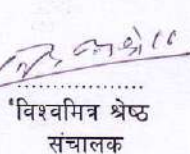 विश्वमित्र श्रेष्ठ
संचालक